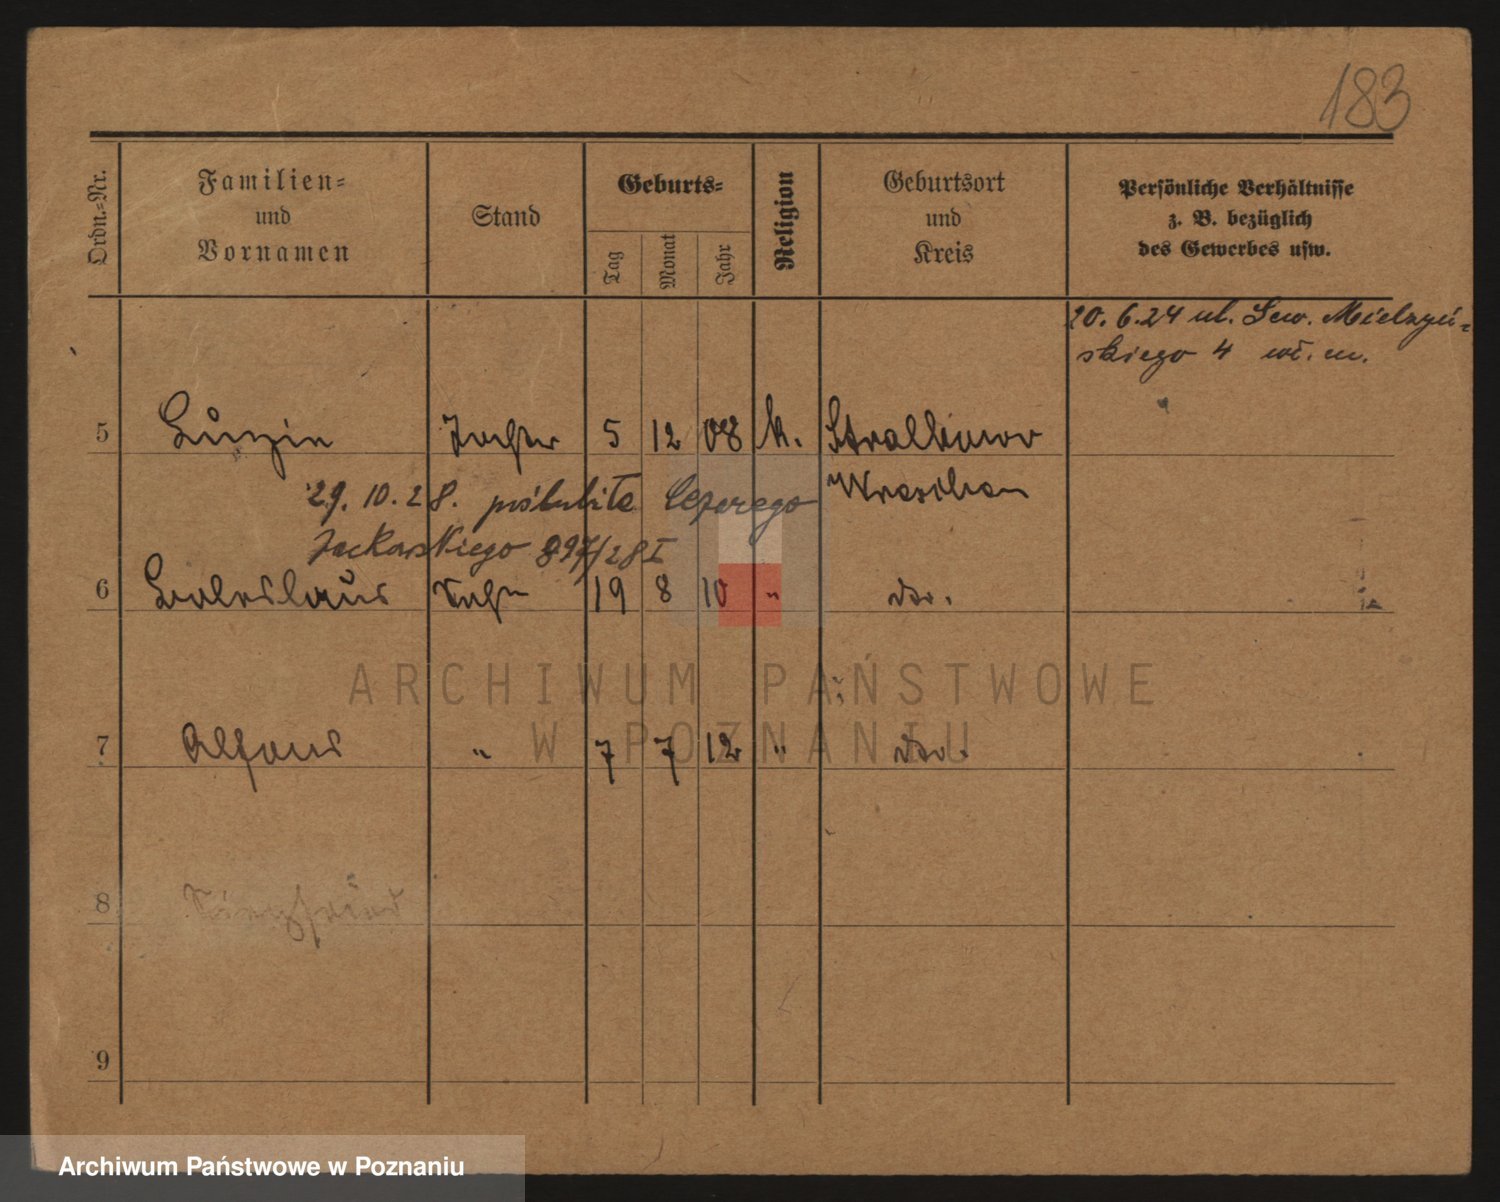 183
Ordn.=Nr.
Familien=
und
Vornamen
Stand
Geburts=
Tag
Monat
Jahr
Religion
Geburtsort
und
Kreis
Persönliche Verhältnisse
z. B. bezüglich
des Gewerbes usw.
20. 6. 24 ul. Sew. Mielzyń=
skiego 4 wł. m.
5 Luzie Tochter 5 12 08 k. Stralkowo
Wreschen
29. 10. 28. poślubiła Cezarego
897/28 I
6 Boleslaus Sohn 19 8 10 " do.
ARCHIWUM PAŃSTWOWE
W POZNANIU
7 Alfons " 7 7 12 " do.
8 Siegfried
9
Archiwum Państwowe w Poznaniu